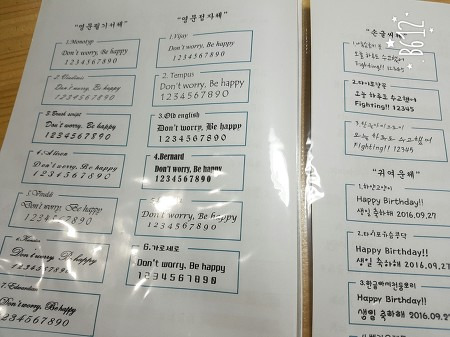 "영문필기서체"
1.Monotyp
Don't worry, Be happy
1234567890
2.Vladimir
Don't worry, Be happy
1234567890
3.Brush script
Don't worry, Be happy
1234567890
4.
Don't worry, Be happy
1234567890
5.Vivaldi
Don't worry, Be happy
1234567890
6.
Don't worry, Be happy
1234567890
7.Edwardian
Don't worry, Be happy
1234567890
"영문정자체"
1.Vijay
Don't worry, Be happy
1234567890
2. Tempus
Don't worry, Be happy
1234567890
3.Old english
Don't worry, Be happy
1234567890
4.Bernard
Don't worry, Be happy
1234567890
Don't worry, Be happy
1234567890
6.가로세로
Don't worry, Be happy
1234567890
"손글씨체"
오늘 하루도 수고했어
Fighting!! 12345
2.타이포
오늘 하루도 수고했어
Fighting!! 12345
오늘 하루도 수고했어
Fighting!! 12345
"귀여운체"
1.하얀고양이
Happy Birthday!!
생일 축하해 2016.09.27
2.타이포유승공단
Happy Birthday!!
생일 축하해 2016.09.27
Happy Birthday!!
생일 축하해 2016.09.27
B612